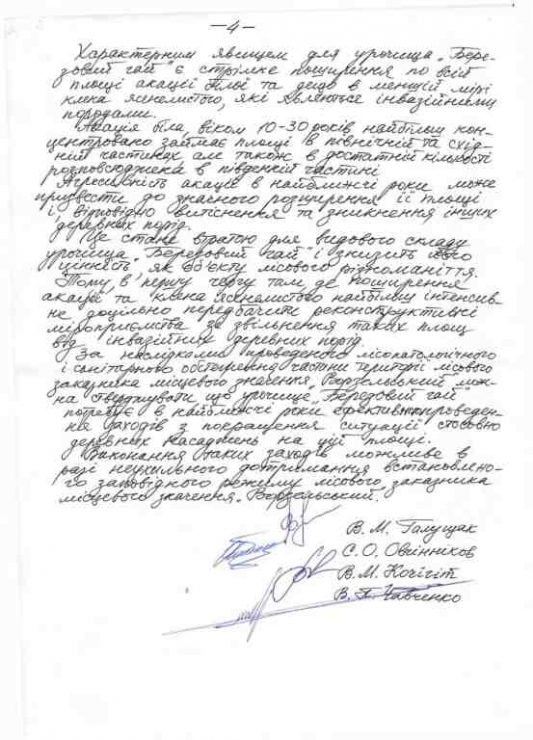 – 4 –
Характерним явищем для урочища „Бере-
зовий гай" є стрімке поширення по всій
площі акації білої та дещо в меншій мірі
клена ясенелистого, які являються інвазійними
породами.
Акація біла, віком 10-30 років найбільш кон-
центровано займає площі в північній та схід-
ній частинах але також в достатній кількості
розповсюджена в південній частині.
Агресивність акації в найближчі роки може
призвести до значного розширення її площі
і відповідно витіснення та зникнення інших
деревних порід.
Це стане втратою для видового складу
урочища „Березовий гай" і знизить його
цінність, як об'єкту лісового різноманіття.
Тому в першу чергу там де поширення
акації та клена ясенелистого найбільш інтенсив-
не доцільно передбачити реконструктивні
міроприємства за звільнення таких площ
від інвазійних деревних порід.
За наслідками проведеного лісопатологічного
і санітарного обстеження частини території лісового
заказника місцевого значення „Борзельський" мож-
на стверджувати що урочище „Березовий гай"
потребує в найближчі роки ефективн проведен-
ня заходів з покращення ситуації стосовно
деревних насаджень на цій площі.
Виконання таких заходів можливе в
разі неухильного дотримання встановлено-
го заповідного режиму лісового заказника
місцевого значення „Борзельський".
В. М. Галущак
С. О. Овчінников
В. М. Кочігіт
В. П. Чавченко